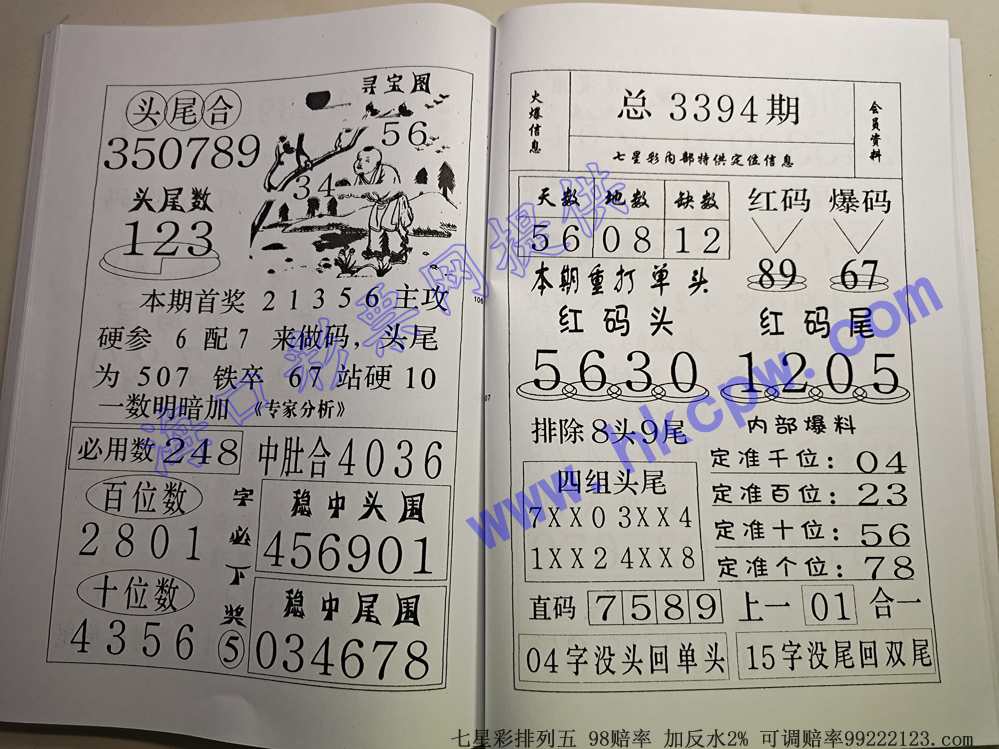 头尾合
350789
寻宝图
56
34
头尾数
123
本期首奖 21356 主攻
硬参 6 配 7 来做码，头尾
为 507 铁卒 67 站硬 10
一数明暗加 《专家分析》
必用数 248
中肚合 4036
百位数
2801
十位数
4356
字必下奖⑤
稳中头围
456901
稳中尾围
034678
火爆信息
总 3394 期
会员资料
七星彩内部特供定位信息
天数 地数 缺数
56 08 12
红码 爆码
89 67
本期重打单头
红码头
5630
红码尾
1205
排除8头9尾
内部爆料
四组头尾
7XX0 3XX4
1XX2 4XX8
定准千位：04
定准百位：23
定准十位：56
定准个位：78
直码 7589 上一 01 合一
04字没头回单头
15字没尾回双尾
海口彩票网提供
www.hkcpw.com
七星彩排列五 98赔率 加反水2% 可调赔率99222123.com